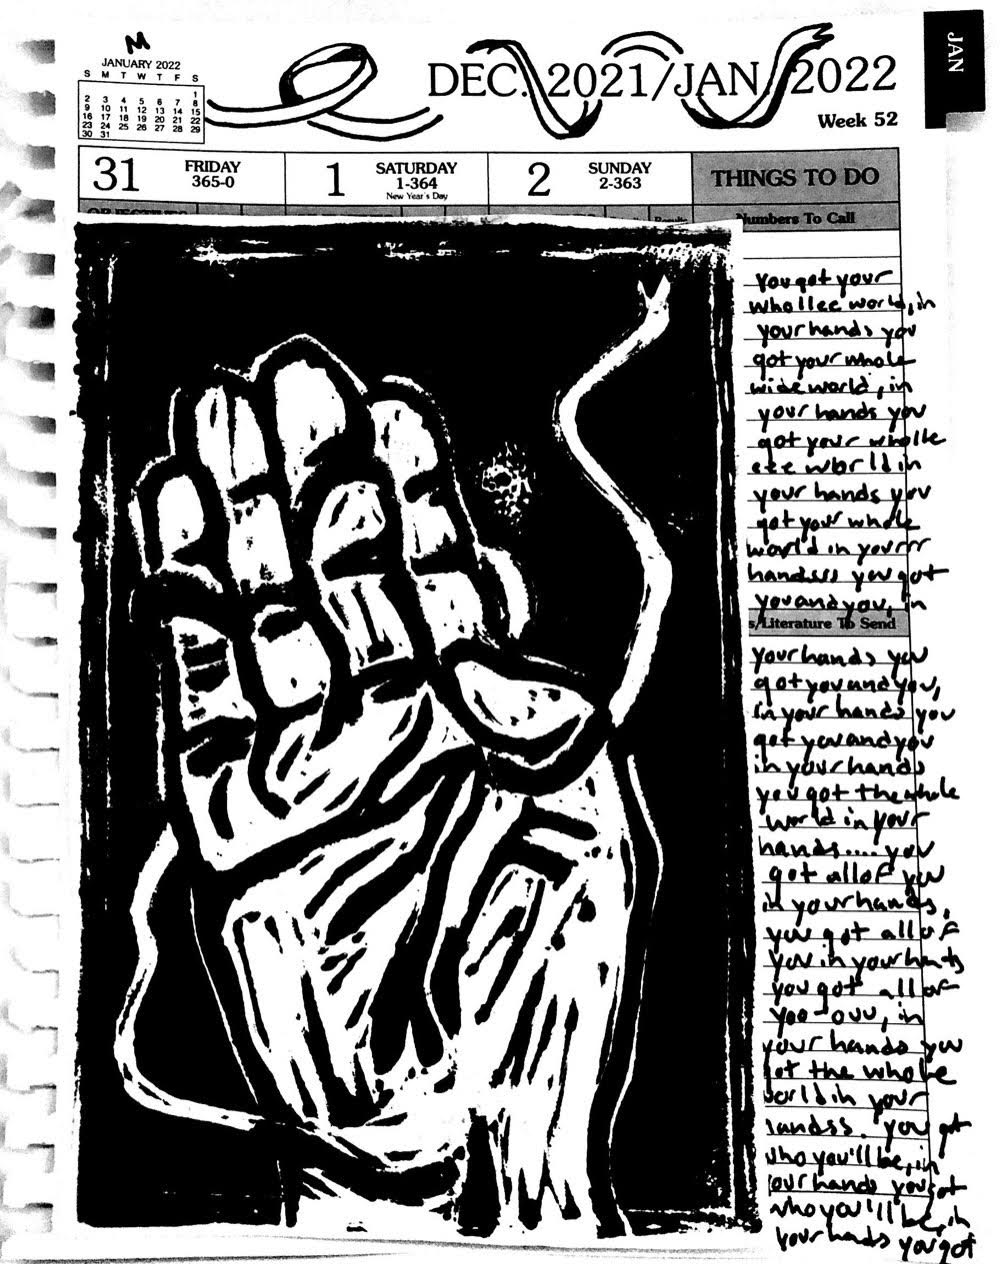 M
JANUARY 2022
S M T W T F S
1
2 3 4 5 6 7 8
9 10 11 12 13 14 15
16 17 18 19 20 21 22
23 24 25 26 27 28 29
30 31
DEC. 2021/JAN 2022
JAN
Week 52
31 FRIDAY 365-0
1 SATURDAY 1-364
New Year's Day
2 SUNDAY 2-363
THINGS TO DO
OBJECTIVES
Results
Numbers To Call
you got your
whollee world, in
your hands you
got your whole
wide world, in
your hands you
got your wholle
eee world in
your hands you
got your whole
world in yourrr
handsss you got
you and you, in
s/Literature To Send
your hands you
got you and you,
in your hands you
got you and you
in your hands
you got the whole
world in your
hands.... you
got all of you
in your hands,
you got all of
you in your hands
you got all of
yoo-ouu, in
your hands you
got the whole
world in your
handss. you got
who you'll be, in
your hands you got
who you'll be, in
your hands you got